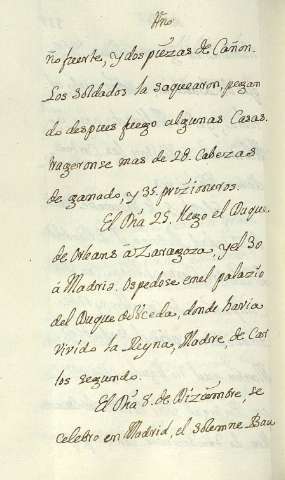 Año
ño fuerte, y dos piezas de Cañon.
Los Soldados la saquearon, pegan
do despues fuego algunas Casas.
trageronse mas de 28. Cabezas
de ganado, y 35. prizioneros.
El Dia 25. llego el Duque
de Orleans à Zaragoza, y el 30
à Madrid. Ospedose en el palazio
del Duque de Uceda, donde havia
vivido la Reyna, Madre, de Car
los segundo.
El Dia 8. de Diziembre, se
celebro en Madrid, el solemne Bau